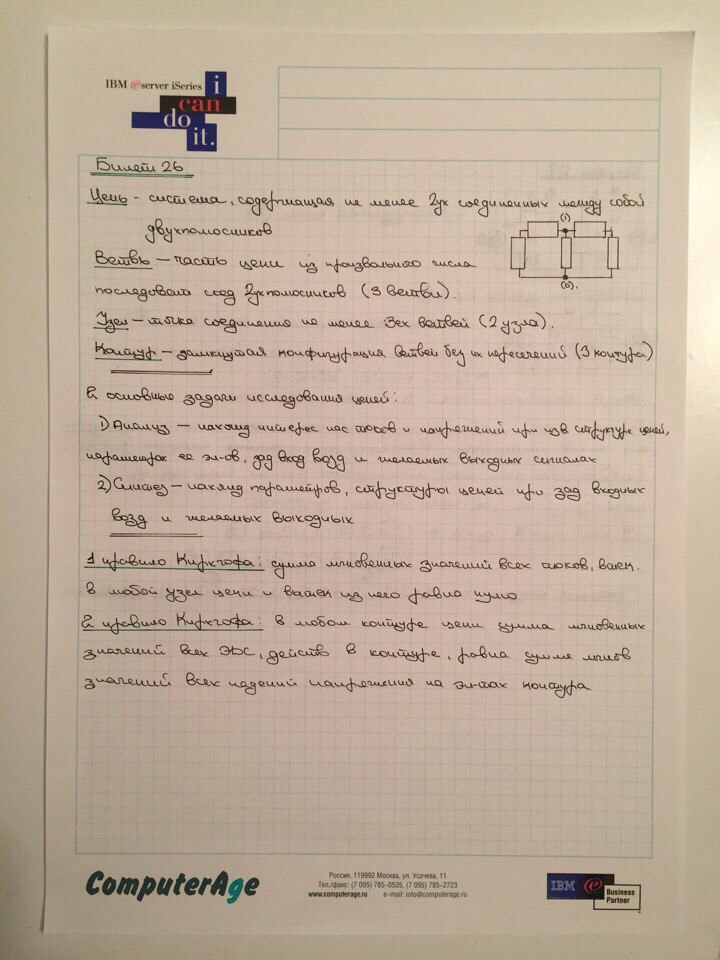 IBM @server iSeries
i
can
do
it.
Билет 26
Цепь - система, содержащая не менее 2ух соединенных между собой
двухполюсников
(1)
(0).
Ветвь - часть цепи из произвольного числа
последоват соед 2ухполюсников (3 ветви).
Узел - точка соединения не менее 3ех ветвей (2 узла).
Контур - замкнутая конфигурация ветвей без их пересечений (3 контура)
2 основные задачи исследования цепей:
1) Анализ - нахожд интерес нас токов и напряжений при изв структуре цепей,
параметрах ее эл-ов, зад вход возд и желаемых выходных сигналах
2) Синтез - нахжд параметров, структуры цепей при зад входных
возд и желаемых выходных
1 правило Кирхгофа: сумма мгновенных значений всех токов, втек.
в любой узел цепи и вытек из него равна нулю
2 правило Кирхгофа: в любом контуре цепи сумма мгновенных
значений всех ЭДС, действ в контуре, равна сумме мгнов
значений всех падений напряжения на эл-тах контура
ComputerAge
Россия, 119992 Москва, ул. Усачева, 11
Тел./факс: (7 095) 785-0535, (7 095) 785-2723
www.computerage.ru e-mail: info@computerage.ru
IBM @ Business
Partner